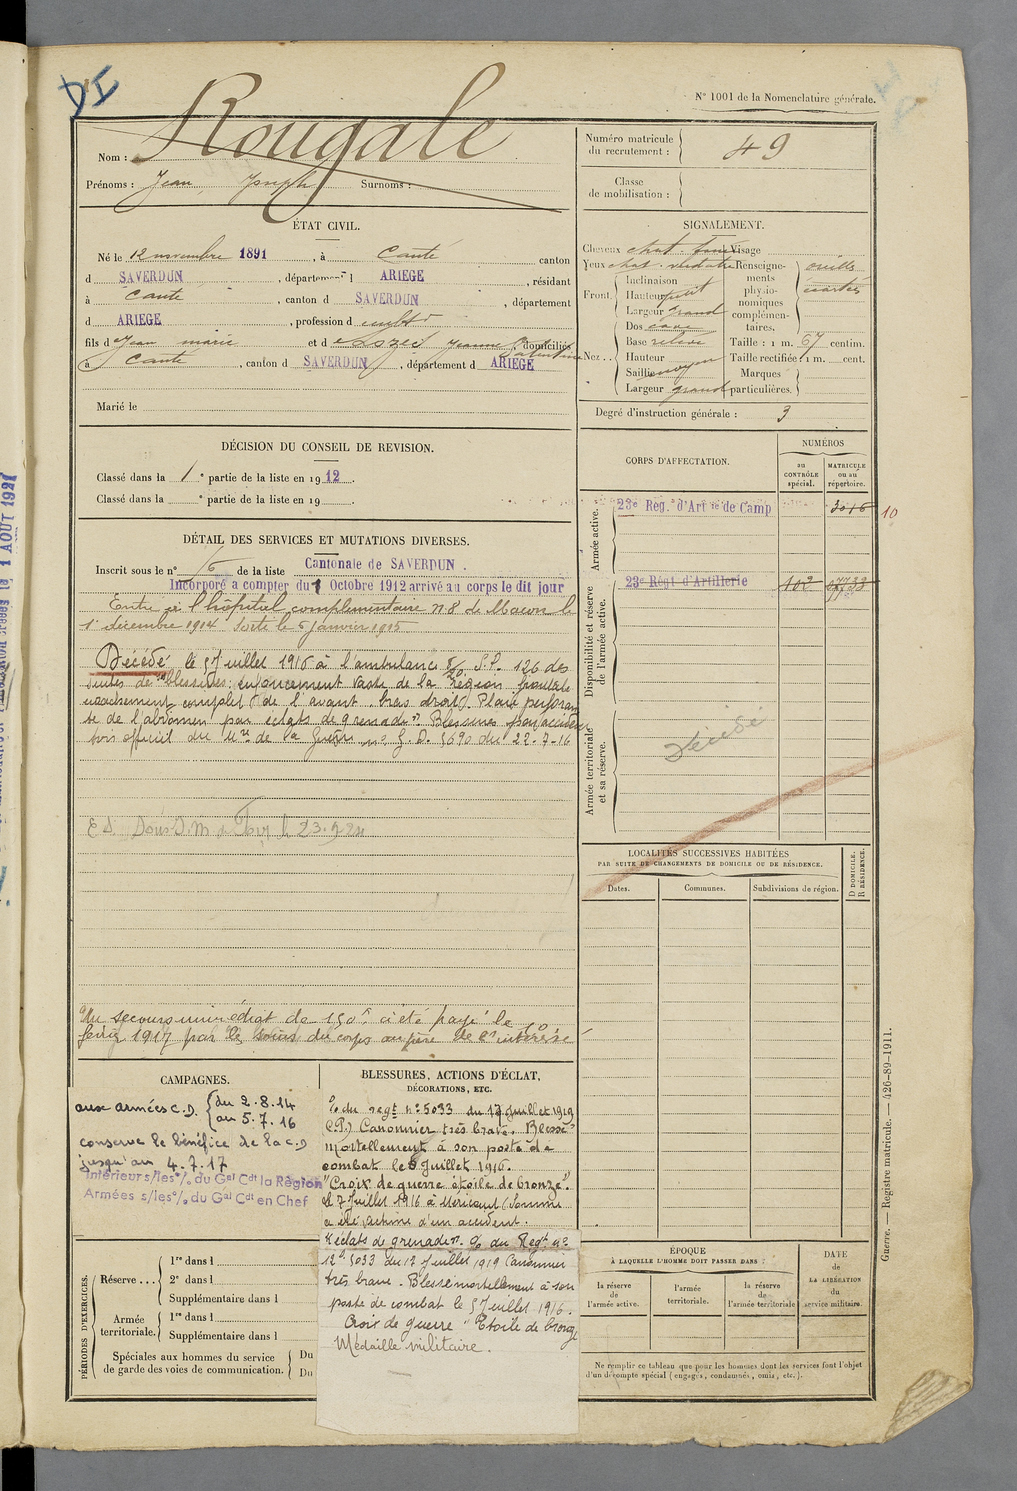 DI
N° 1001 de la Nomenclature générale.
Nom : Rougale
Prénoms : Jean Joseph Surnoms :
Numéro matricule du recrutement : 49
Classe de mobilisation :
ÉTAT CIVIL.
Né le 12 novembre 1891, à Canté canton
d SAVERDUN, département d ARIEGE, résidant
à Canté, canton d SAVERDUN, département
d ARIEGE, profession d cultr
fils de Jean Marie et d Jeanne domiciliés
à Canté, canton d SAVERDUN, département d ARIEGE
Marié le
SIGNALEMENT.
Cheveux chat. foncé Visage
Yeux chat. Renseignements physionomiques complémentaires.
oreilles
écartées
Front
Inclinaison
Hauteur petit
Largeur grand
Nez
Dos cave
Base relevé
Hauteur
Saillie moyen
Largeur grand
Taille : 1 m. 67 centim.
Taille rectifiée : 1 m. cent.
Marques particulières.
Degré d'instruction générale : 3
DÉCISION DU CONSEIL DE REVISION.
Classé dans la 1e partie de la liste en 1912.
Classé dans la e partie de la liste en 19
CORPS D'AFFECTATION.
NUMÉROS
au CONTRÔLE spécial.
MATRICULE ou au répertoire.
Armée active.
23e Rég. d'Artie de Camp 3016
10
Disponibilité et réserve de l'armée active.
23e Régt d'Artillerie
Armée territoriale et sa réserve.
Décédé
DÉTAIL DES SERVICES ET MUTATIONS DIVERSES.
Inscrit sous le n° 16 de la liste Cantonale de SAVERDUN.
Incorporé à compter du 1 Octobre 1912 arrivé au corps le dit jour
Entré à l'hôpital complémentaire n° 8 de Macon le
1er décembre 1914 Sorti le 6 janvier 1915
Décédé le 5 Juillet 1916 à l'ambulance 8/20 S.P. 126 des
suites de "blessures: enfoncement vaste de la région frontale
arrachement complet de l'avant-bras droit. Plaie perforan
te de l'abdomen par éclats de grenade". Blessures par accident
avis officiel du Mre de la Guerre no G.D. 5690 du 22-7-16
Un secours immédiat de 150f a été payé le 10
février 1917 par les soins du corps au père de l'intéressé
LOCALITÉS SUCCESSIVES HABITÉES
PAR SUITE DE CHANGEMENTS DE DOMICILE OU DE RÉSIDENCE.
Dates.
Communes.
Subdivisions de région.
D DOMICILE.
R RÉSIDENCE.
CAMPAGNES.
aux armées C.D. { du 2.8.14
au 5.7.16
conserve le bénéfice de la C.D
jusqu'au 4.7.17
Intérieur s/les o/. du Gal Cdt la Région
Armées s/les o/. du Gal Cdt en Chef
BLESSURES, ACTIONS D'ÉCLAT,
DÉCORATIONS, ETC.
O/ du regt n° 5033 du 17 Juillet 1919
(C.P.) Canonnier très brave. Blessé
mortellement à son poste de
combat le 5 Juillet 1916.
"Croix de guerre étoile de bronze".
Le 7 Juillet 1916 à Méricourt (Somme
a été victime d'un accident.
éclats de grenade. O/ du Régt n°
5033 du 12 Juillet 1919 Canonnier
très brave. Blessé mortellement à son
poste de combat le 5 Juillet 1916.
Croix de guerre "Etoile de bronze
Médaille militaire.
PÉRIODES D'EXERCICES.
Réserve...
1re dans l
2e dans l
Supplémentaire dans l
Armée territoriale.
1re dans l
Supplémentaire dans l
Spéciales aux hommes du service de garde des voies de communication.
Du
Du
ÉPOQUE
À LAQUELLE L'HOMME DOIT PASSER DANS :
la réserve de l'armée active.
l'armée territoriale.
la réserve de l'armée territoriale
DATE de LA LIBÉRATION du service militaire.
Ne remplir ce tableau que pour les hommes dont les services font l'objet
d'un décompte spécial (engagés, condamnés, omis, etc.).
Guerre. — Registre matricule. — 426-89-1911.
1 AOUT 1921